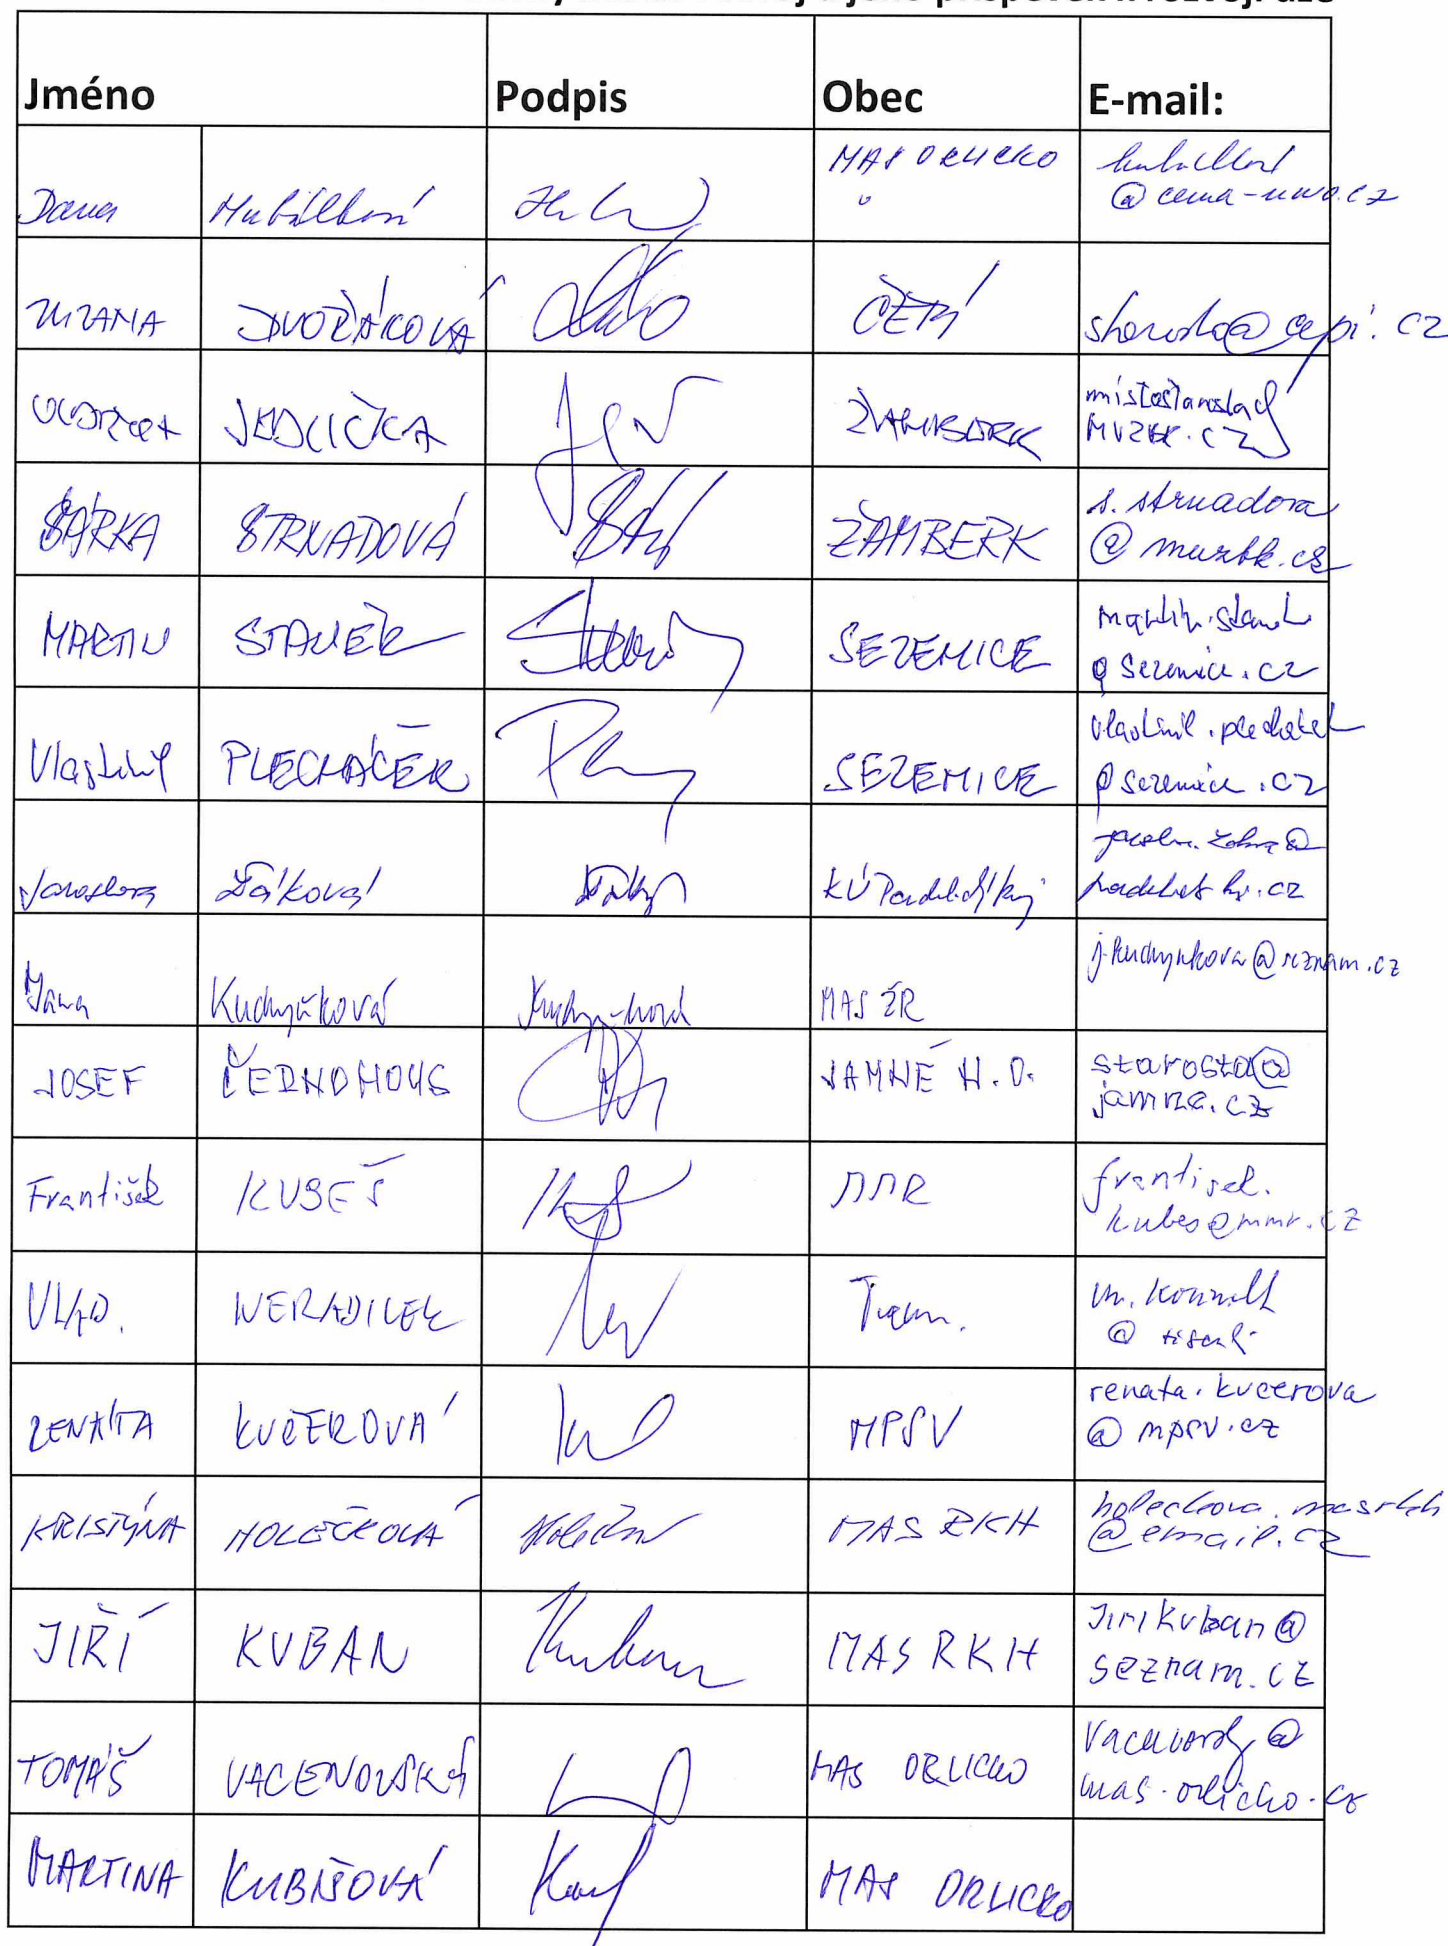 Jméno Podpis Obec E-mail:
Dana MAS ORLICKO
@
ZUZANA DVOŘÁKOVÁ ČEPÍ starosta@cepi.cz
JEDLIČKA ŽAMBERK místostarosta@
MUZBK.CZ
ŠÁRKA STRNADOVÁ ŽAMBERK s.strnadova
@muzbk.cz
MARTIN STANĚK SEZEMICE martin.stanek
@sezemice.cz
Vlastimil PLECHÁČEK SEZEMICE vlastimil.plechacek
@sezemice.cz
Jaroslava Žáková KÚ
Jana Kuchyňková MAS ŽR j.kuchynkova@seznam.cz
JOSEF ČERNOHOUS JAMNÉ N.O. starosta@
jamne.cz
František KUBEŠ MMR frantisek.
kubes@mmr.cz
VLAD. NERADILEK
@
RENÁTA KUČEROVÁ MPSV renata.kucerova
@mpsv.cz
KRISTÝNA HOLEČKOVÁ MAS RKH holeckova.masrkh
@email.cz
JIŘÍ KUBAN Kuban MAS RKH Jirikuban@
seznam.cz
TOMÁŠ VACENOVSKÝ MAS ORLICKO
mas.orlicko.cz
MARTINA KUBIŠOVÁ MAS ORLICKO